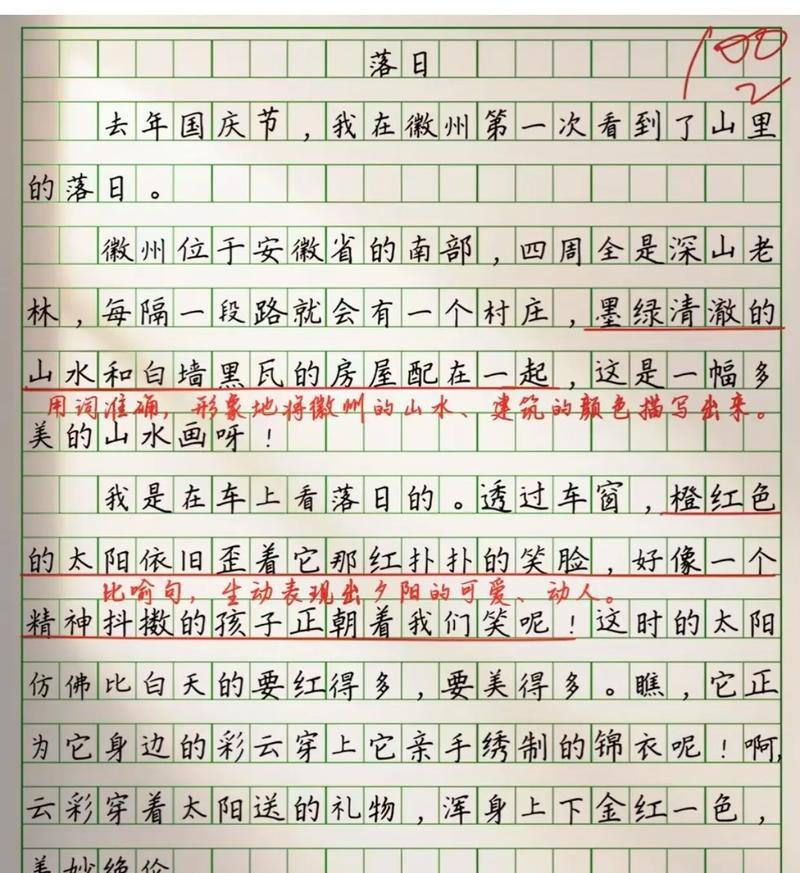 落日
100
去年国庆节，我在徽州第一次看到了山里
的落日。
徽州位于安徽省的南部，四周全是深山老
林，每隔一段路就会有一个村庄，墨绿清澈的
山水和白墙黑瓦的房屋配在一起，这是一幅多
用词准确，形象地将徽州的山水、建筑的颜色描写出来。
美的山水画呀！
我是在车上看落日的。透过车窗，橙红色
的太阳依旧歪着它那红扑扑的笑脸，好像一个
比喻句，生动表现出夕阳的可爱、动人。
精神抖擞的孩子正朝着我们笑呢！这时的太阳
仿佛比白天的要红得多，要美得多。瞧，它正
为它身边的彩云穿上它亲手绣制的锦衣呢！啊，
云彩穿着太阳送的礼物，浑身上下金红一色，
美妙绝伦